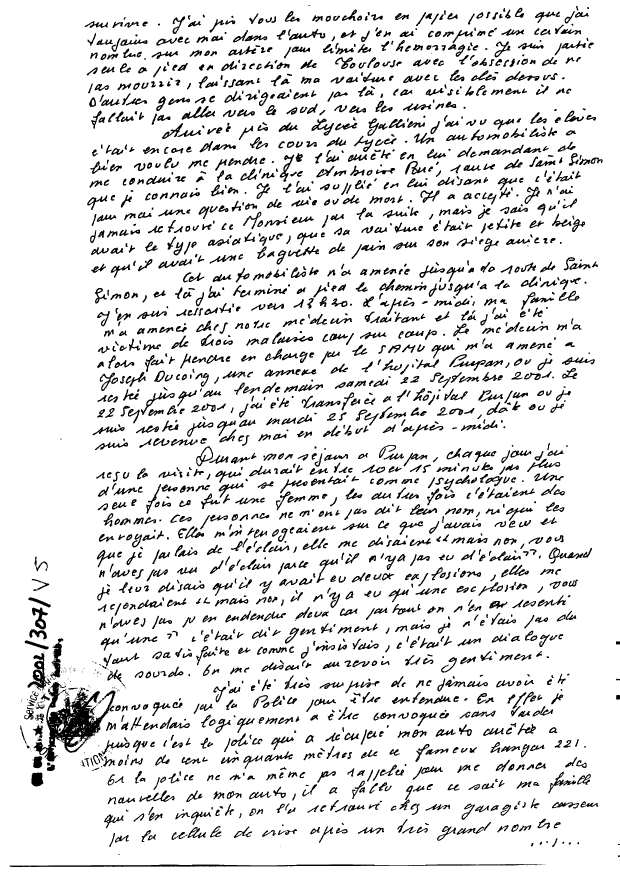 survivre. J'ai pris tous les mouchoirs en papier possible que j'ai
toujours avec moi dans l'auto, et j'en ai comprimé un certain
nombre sur mon artère pour limiter l'hémorragie. Je suis partie
seule a pied en direction de Toulouse avec l'obsession de ne
pas mourrir, laissant là ma voiture avec les clés dessus.
D'autres gens se dirigeaient par là, car visiblement il ne
fallait pas aller vers le sud, vers les usines.
Arrivée près du Lycée Gallieni j'ai vu que les élèves
était encore dans les cours du Lycée. Un automobiliste a
bien voulu me prendre. Je l'ai arrêté en lui demandant de
me conduire à la clinique Ambroise Paré, route de Saint Simon
que je connais bien. Je l'ai supplié en lui disant que c'était
pour moi une question de vie ou de mort. Il a accepté. Je n'ai
jamais retrouvé ce Monsieur par la suite, mais je sais qu'il
avait le type asiatique, que sa voiture était petite et beige
et qu'il avait une baguette de pain sur son siège arrière.
Cet automobiliste m'a amenée jusqu'a la route de Saint
Simon, et là j'ai terminé a pied le chemin jusqu'a la clinique.
J'en suis ressortie vers 12h20. L'après-midi, ma famille
m'a amenée chez notre médecin traitant et là j'ai été
victime de trois malaises coup sur coup. Le médecin m'a
alors fait prendre en charge par le SAMU qui m'a amené a
Joseph Ducoing, une annexe de l'hopital Purpan, ou je suis
restée jusqu'au lendemain samedi 22 Septembre 2001. Le
22 Septembre 2001, j'ai été transférée a l'hôpital Purpan ou je
suis restée jusqu'au mardi 25 Septembre 2001, date ou je
suis revenue chez moi en début d'après-midi.
Durant mon séjour a Purpan, chaque jour j'ai
reçu la visite, qui durait entre 10 et 15 minutes pas plus
d'une personne qui se présentait comme psychologue. Une
seule fois ce fut une femme, les autres fois c'étaient des
hommes. Ces personnes ne m'ont pas dit leur nom, ni qui les
envoyait. Elles m'interrogeaient sur ce que j'avais vécu et
que je parlais de l'éclair, elle me disaient "mais non, vous
n'avez pas vu d'éclair parce qu'il n'y a pas eu d'éclair". Quand
je leur disais qu'il y avait eu deux explosions, elles me
répondaient "mais non, il n'y a eu qu'une explosion, vous
n'avez pas pu en entendre deux car partout on n'en a ressenti
qu'une" c'était dit gentiment, mais je n'étais pas du
tout satisfaite et comme j'insistais, c'était un dialogue
de sourds. On me disait au revoir très gentiment.
J'ai été très surprise de ne jamais avoir été
convoquée par la Police pour être entendue. En effet je
m'attendais logiquement a être convoquée sans tarder
puisque c'est la police qui a récupéré mon auto arrêtée a
moins de cent cinquante mètres de ce fameux hangar 221.
Or la police ne m'a même pas rappelée pour me donner des
nouvelles de mon auto, il a fallu que ce soit ma famille
qui s'en inquiète, on l'a retrouvé chez un garagiste casseur
par la cellule de crise après un très grand nombre
.../...
2002/307/V5